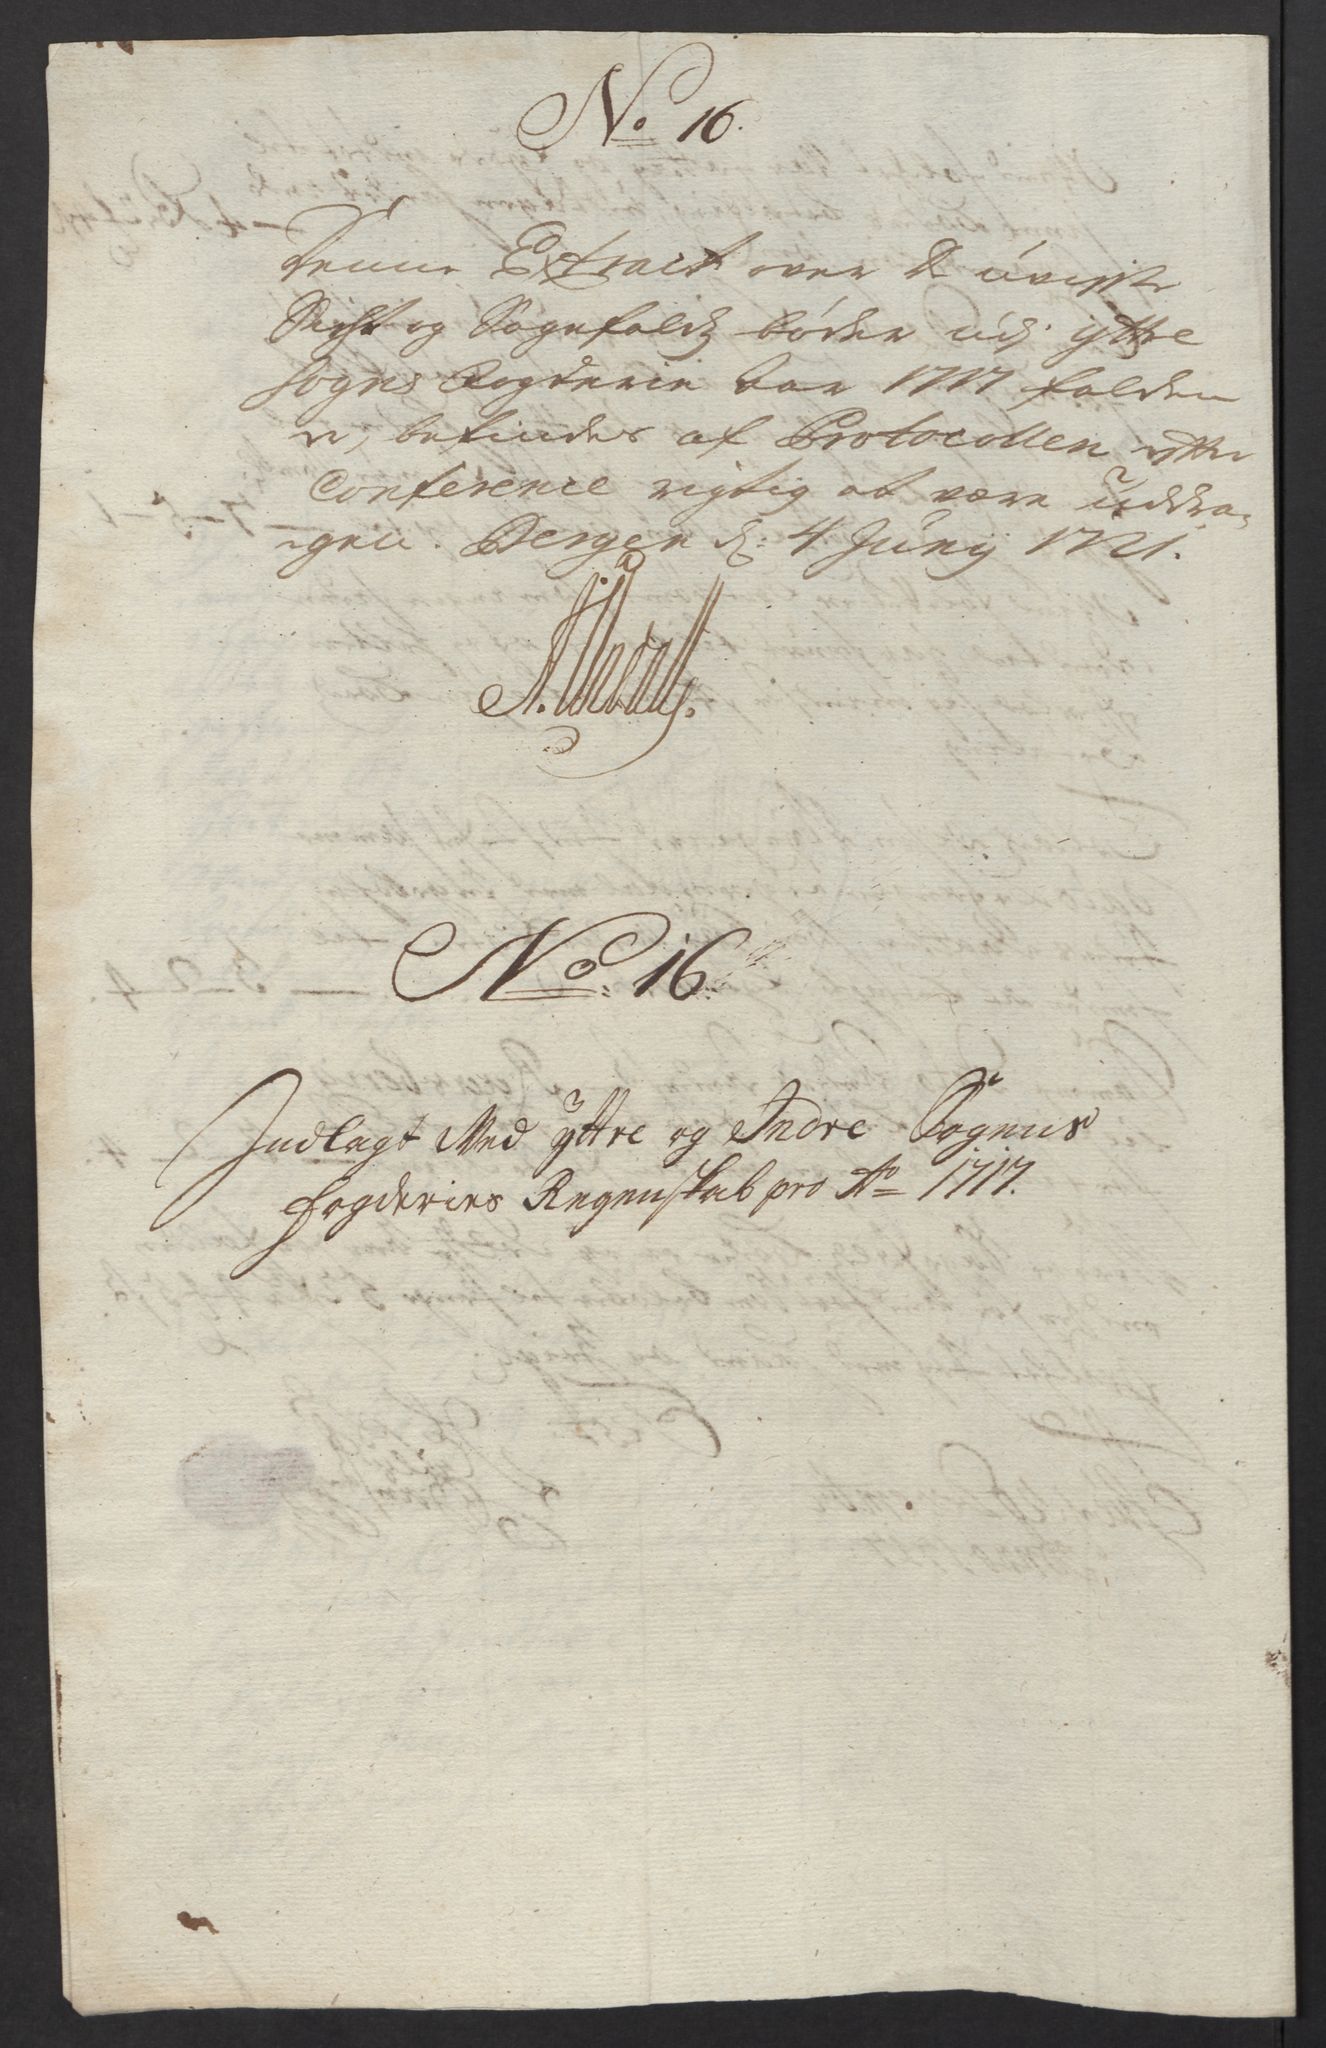 No 16.
Denne Extract over de uvisse
Sigt og Sagefalds bøder udj Ytre
Sogns Fogderie for 1717 falden
er, befindes af Protocollen efter
Conference rigtig at være uddra-
gen. Bergen d: 4 Junij 1721.
No. 16
Indlagt Med Yttre og Indre Sogens
fogderies Regenskab pro Ao 1717.